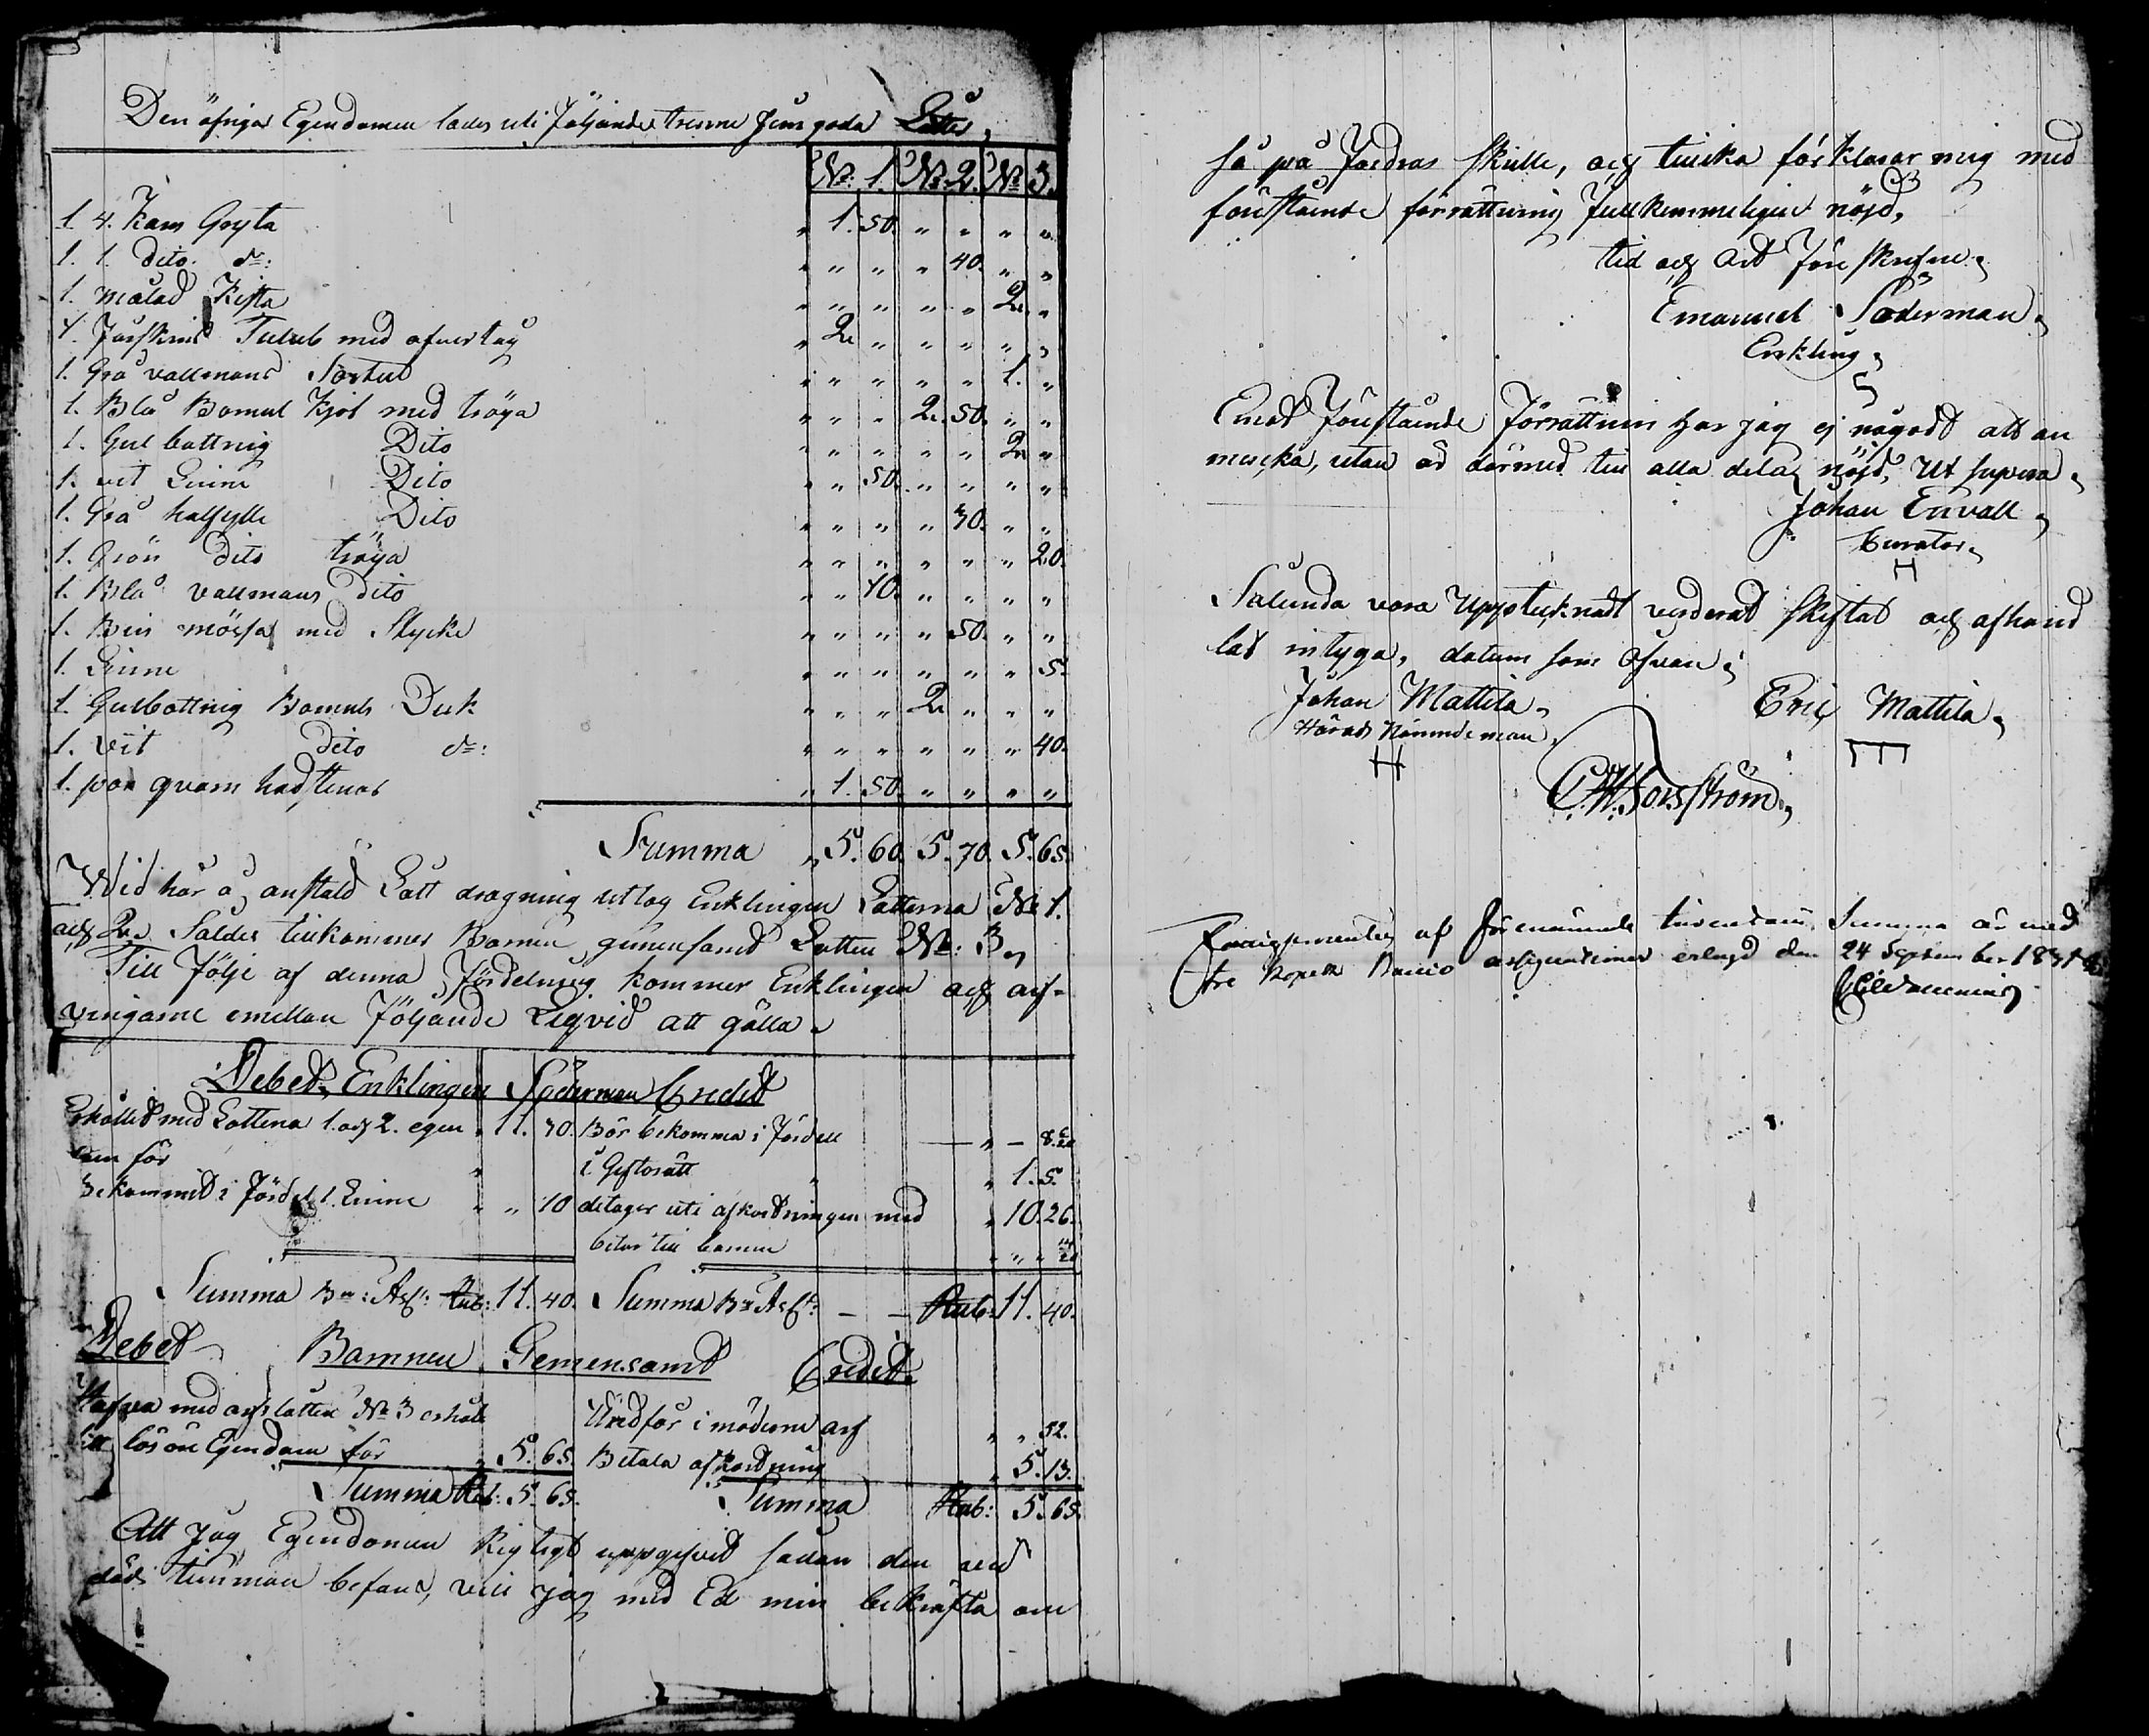 Den öfriga Egendomen lades uti följande trenne jemgoda Låtter,
N: 1. N: 2. N: 3.
1. 4. Kans Gryta " 1. 50. " " " "
1. 1. dito d:o " " " " 40. " "
1. målad Kista " " " " " 2. "
1. Fårskins Tulub med öfvertåg " 2. " " " " "
1. Grå vallmans Sortut " " " " " 1. "
1. Blå Bomul Kjol med tröya " " " 2. 50. " "
1. Gul bottnig Dito " " " " " 2. "
1. vit Linne Dito " " 50. " " " "
1. Grå halfylle Dito " " " " 30. " "
1. Grön dito tröya " " " " " " 20.
1. Blå vallmans dito " " 10. " " " "
1. Bin mössa med Stycke " " " " 50. " "
1. Linne " " " " " " 5.
1. Gulbottnig Bomuls Duk " " " 2. " " "
1. Vit dito d:o " " " " " " 40.
1. par qvarn handstenar " 1. 50. " " " "
Summa " 5. 60. 5. 70. 5. 65.
Wid här å anstäld Lått dragning uttog Enklingen Låtterna N: 1.
och 2. Således tillkommer Barnen gemensamt Låtten N: 3,
Till följe af denna fördelning kommer Enklingen och arf-
vingarne emellan följande Liqvid att gälla.
Debet, Enklingen Söderman Credit
Erhållit med Låtterna 1. och 2. egen " 11. 30. Bör bekomma i fördel — " —
dom för " i Giftorätt " " 1. 5.
Bekommit i fördel 1. Linne " " 10 deltager uti afkortningen med " 10. 26.
betar till barnen
Summa B:co Ass: Rub: 11. 40. Summa B:co Ass: — — Rub: 11. 40.
Debet Barnen Gemensamt Credit
Hafva med arfslåtten N: 3 erhål Undfår i möderne arf " " 52.
lit lösöre Egendom för " 5. 65. Betala afkordning " 5. 13.
Summa Rub: 5. 65. Summa Rub: 5. 65.
Att jag Egendomen Rigtigt uppgifvit sådan den ved
döds timman befans, vill jag med Ed min bekräfta om
så på fordras skulle, och tillika förklarar mig med
förestående förrättning fullkommeligen nöjd,
tid och Ort föreskrefne,
Emanuel Söderman,
Enkling,
Emot förestående förrättning har jag ej någodt att an
mercka, utan är dermed till alla delar nöjd, Ut supra,
Johan Envall,
Curator,
Sålunda vara Uppteknadt värderat skiftat och afhand
lat intyga, datum som ofvan,
Johan Mattila, Eric Mattila,
Härads Nämndeman,
C.W. Forsström,
Fattigprocenten af förenämnde Summa är med
tre Kopek Banco assignationer erlagd den 24 September 1831